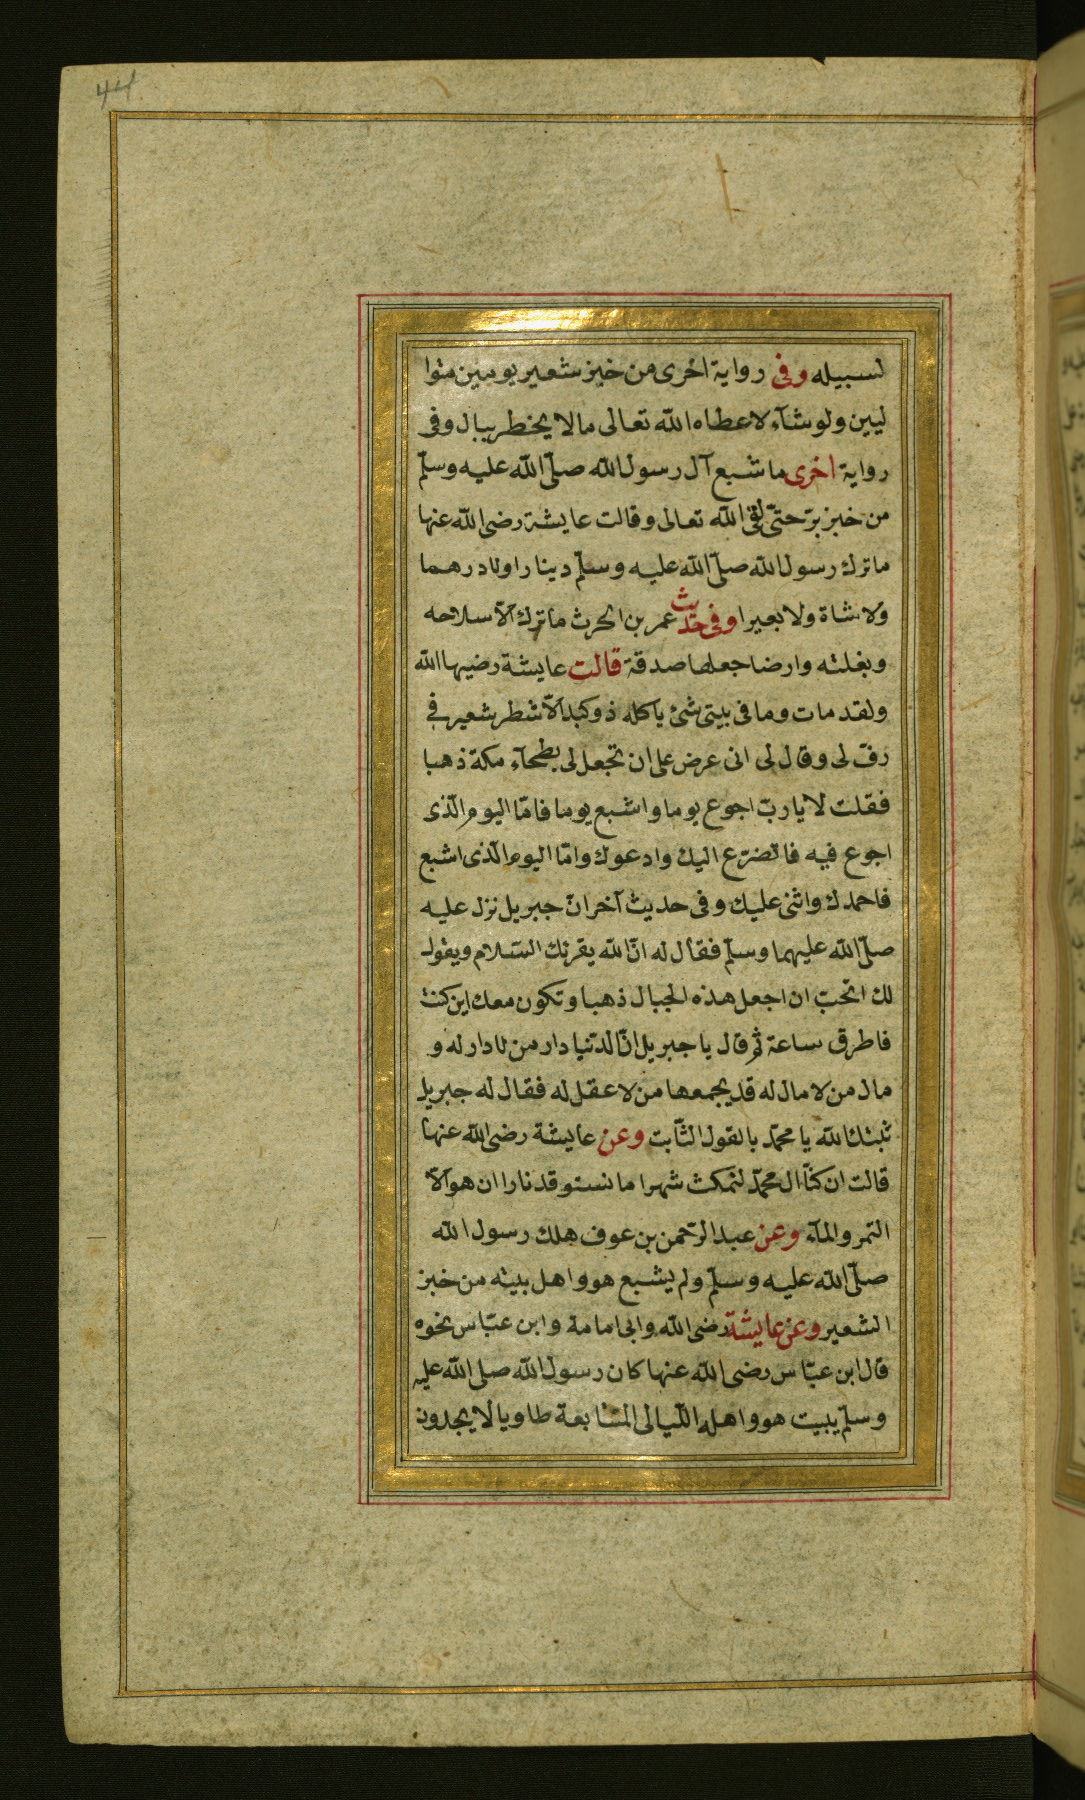 44
لسبيله وفى رواية اخرى من خبز شعير يومين متوا
ليين ولو شآء لاعطاه الله تعالى ما لا يخطر ببال وفى
رواية اخرى ما شبع آل رسول الله صلّى الله عليه وسلّم
من خبز برّ حتىّ لقى الله تعالى وقالت عايشة رضى الله عنها
ما ترك رسول الله صلّى الله عليه وسلّم دينارا ولا درهما
ولا شاة ولا بعيرا وفى حديث عمر بن الحرث ما ترك الّا سلاحه
وبغلته وارضا جعلها صدقة قالت عايشة رضيها الله
ولقد مات وما فى بيتى شئ ياكله ذو كبد الّا شطر شعير فى
رف لى وقال لى انى عرض على ان تجعل لى بطحآء مكة ذهبا
فقلت لا يا ربّ اجوع يوما واشبع يوما فامّا اليوم الّذى
اجوع فيه فاتضرّع اليك وادعوك وامّا اليوم الّذى اشبع
فاحمدك واثنى عليك وفى حديث آخر انّ جبريل نزل عليه
صلّى الله عليهما وسلّم فقال له انّ الله يقرئك السّلام ويقول
لك اتحبّ ان اجعل هذه الجبال ذهبا وتكون معك اين كنت
فاطرق ساعة ثم قال يا جبريل انّ الدّنيا دار من لا دار له و
مال من لا مال له قد يجمعها من لا عقل له فقال له جبريل
ثبّتك الله يا محمّد بالقول الثّابت وعن عايشة رضى الله عنها
قالت ان كنّا ال محمّد لنمكث شهرا ما نستوقد نارا ان هو الّا
التمر والمآء وعن عبد الرّحمن بن عوف هلك رسول الله
صلّى الله عليه وسلّم ولم يشبع هو واهل بيته من خبز
الشعير وعن عايشة رضى الله وابى امامة وابن عبّاس نحوه
قال ابن عبّاس رضى الله عنها كان رسول الله صلى الله عليه
وسلّم يبيت هو واهله اللّيالى المتتابعة طاويا لا يجدون